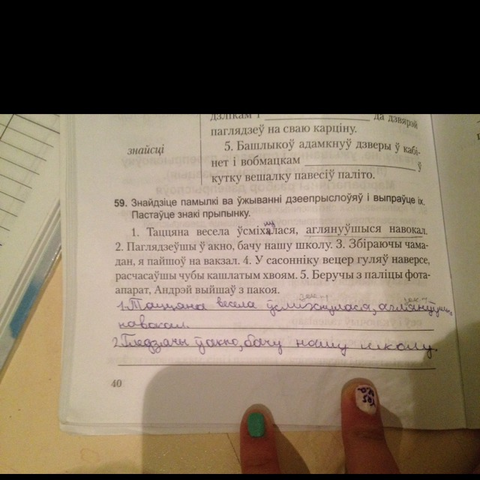 дзлікам і да дзвярэй
паглядзеў на сваю карціну.
знайсці 5. Башлыкоў адамкнуў дзверы ў кабі-
нет і вобмацкам ў
кутку вешалку павесіў паліто.
59. Знайдзіце памылкі ва ўжыванні дзеепрыслоўяў і выпраўце іх.
Пастаўце знакі прыпынку.
1. Таццяна весела ўсміхалася, аглянуўшыся навокал.
2. Паглядзеўшы ў акно, бачу нашу школу. 3. Збіраючы чама-
дан, я пайшоў на вакзал. 4. У сасонніку вецер гуляў наверсе,
расчасаўшы чубы кашлатым хвоям. 5. Беручы з паліцы фота-
апарат, Андрэй выйшаў з пакоя.
1. Таццяна весела ўсміхнулася, аглянуўшыся
навокал.
2. Гледзячы ў акно, бачу нашу школу.
40